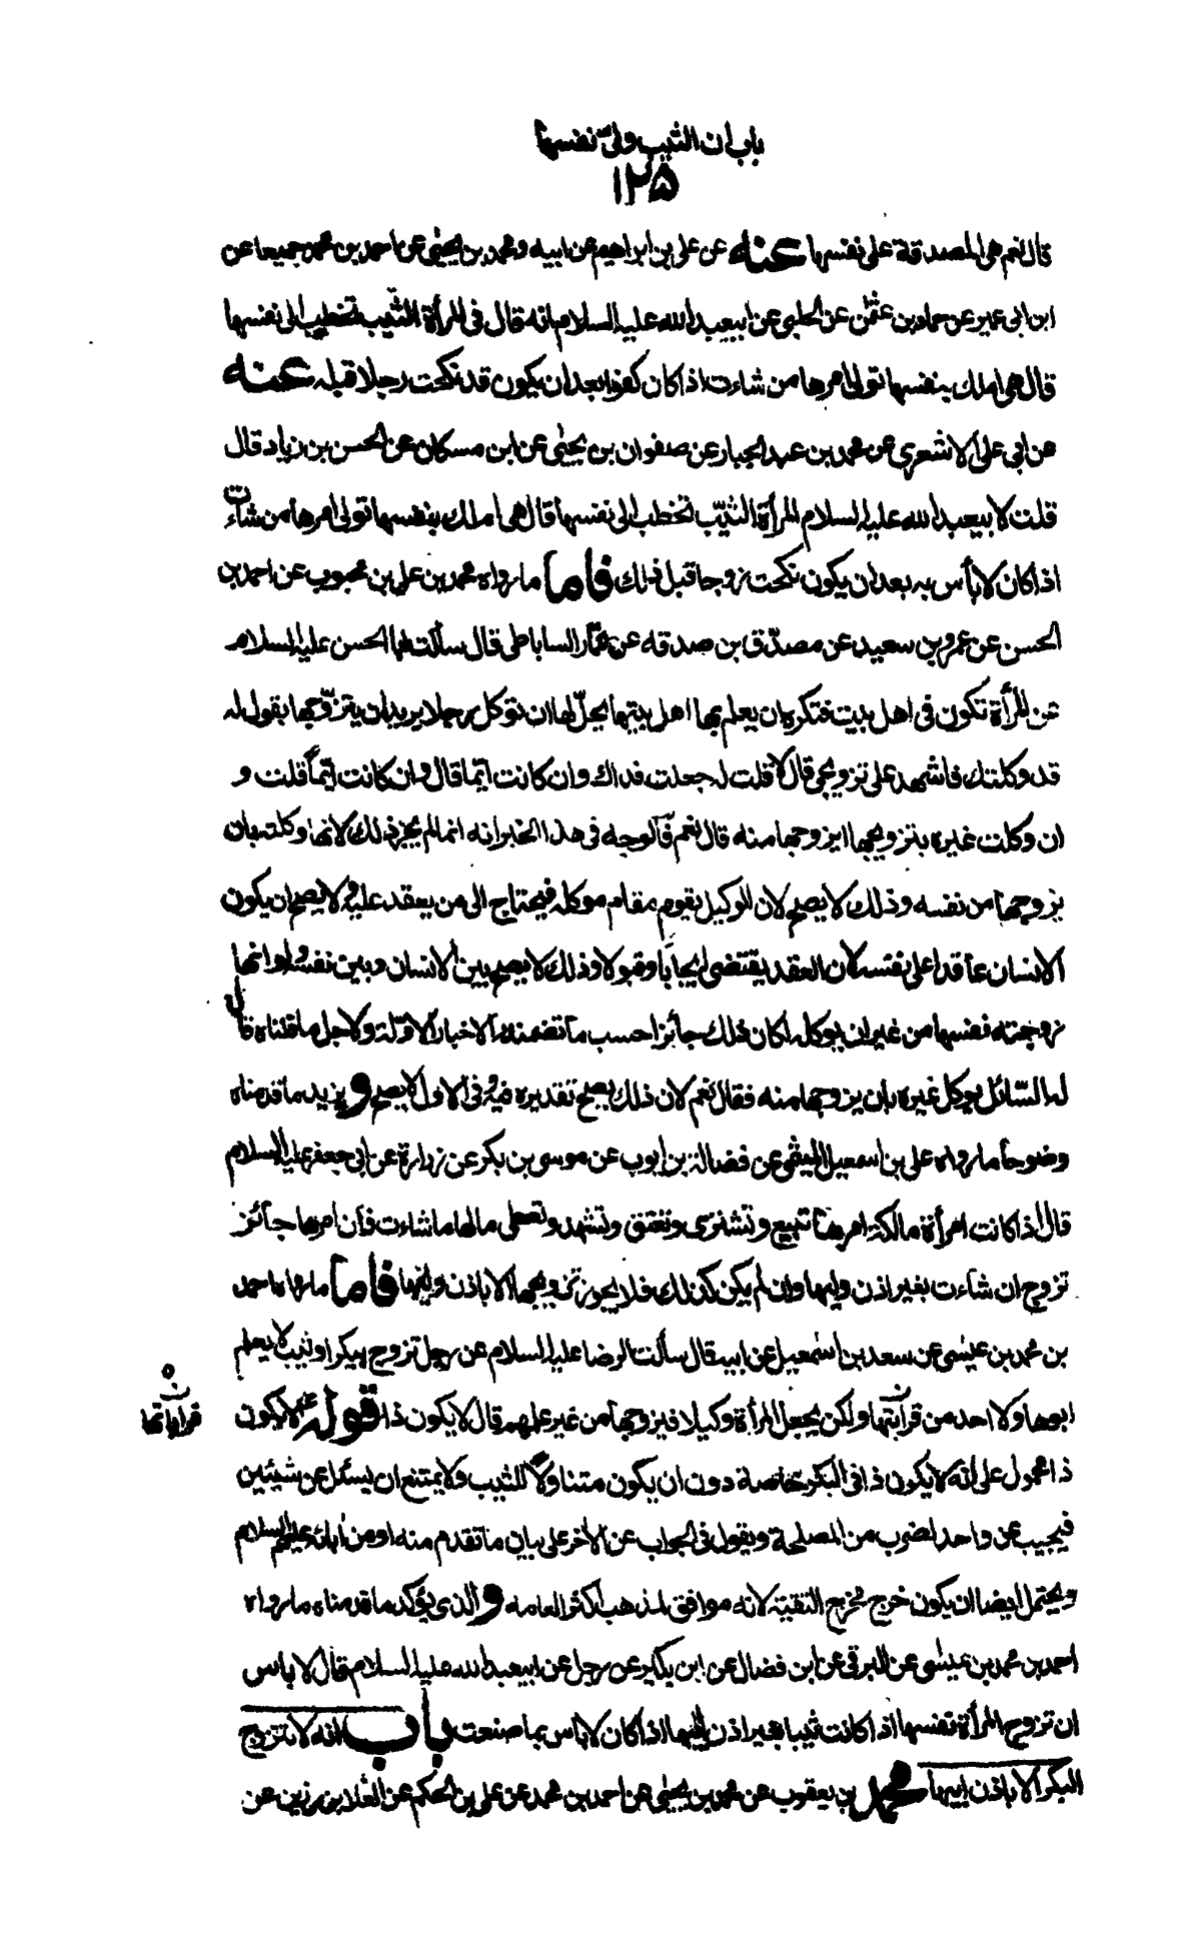 باب ان الثيب ولىّ نفسها
١٢٥
قال نعم هى المصدقة على نفسها عنه عن على بن ابراهيم عن ابيه ومحمد بن يحيى عن احمد بن محمد جميعا عن
ابن ابى عمير عن حماد بن عثمن عن الحلبى عن ابيعبد الله عليه السلام انه قال فى المرأة الثيّب تخطب الى نفسها
قال هى املك بنفسها تولى امرها من شاءت اذا كان كفوا بعد ان يكون قد نكحت رجلا قبله عنه
عن ابى على الاشعرى عن محمد بن عبد الجبار عن صفوان بن يحيى عن ابن مسكان عن الحسن بن زياد قال
قلت لابيعبد الله عليه السلام المرأة الثيّب تخطب الى نفسها قال هى املك بنفسها تولى امرها من شاءت
اذا كان لا بأس به بعد ان يكون نكحت زوجا قبل ذلك فاما ما رواه محمد بن على بن محبوب عن احمد بن
الحسن عن عمرو بن سعيد عن مصدّق بن صدقه عن عمّار الساباطى قال سألت ابا الحسن عليه السلام
عن المرأة تكون فى اهل بيت فتكره ان يعلم بها اهل بيتها يحلّ لها ان توكل رجلا يريد ان يتزوّجها يقول له
قد وكلتك فاشهد على تزويجى قال لا قلت له جعلت فداك وان كانت ايّما قال وان كانت ايّماً قلت و
ان وكلت غيره بتزويجها ايزوجها منه قال نعم فالوجه فى هذا الخبر انه انما لم يجز ذلك لانها وكلته بان
يزوجها من نفسه وذلك لا يصح لان الوكيل يقوم مقام موكله فيحتاج الى من يعقد عليه ولا يصح ان يكون
الانسان عاقدا على نفسه لان العقد يقتضى ايجابا وقبولا وذلك لا يصح بين الانسان وبين نفسه ولو انها
زوجته نفسها من غير ان يوكله لكان ذلك جائزا حسب ما تضمنه الاخبار الاوّلة ولاجل ما قلناه قال
له السّائل يوكل غيره بان يزوجها منه فقال نعم لان ذلك يصح تقديره فيه وفى الاول لا يصح و يزيد ما قدمناه
وضوحا ما رواه على بن اسمعيل الميثمى عن فضالة بن ايوب عن موسى بن بكر عن زرارة عن ابى جعفر عليه السلام
قال اذا كانت امرأة مالكة امرها تبيع وتشترى وتعتق وتشهد وتعطى مالها ما شاءت فان امرها جائز
تزوج ان شاءت بغير اذن وليها وان لم يكن كذلك فلا يجوز تزويجها الا باذن وليها فاما ما رواه احمد
بن محمد بن عيسى عن سعد بن اسمعيل عن ابيه قال سألت الرضا عليه السلام عن رجل تزوج ببكر او ثيب لا يعلم
ابوها ولا احد من قرابتها ولكن يجعل المرأة وكيلا فيزوجها من غير علمهم قال لا يكون ذا قوله لا يكون
قراباتها
ذا محمول على انه لا يكون ذا فى البكر خاصة دون ان يكون متناولا للثيب ولا يمتنع ان يسئل عن شيئين
فيجيب عن واحد لضرب من المصلحة ويقول فى الجواب عن الآخر على بيان ما تقدم منه او من ابائه عليهم السلام
ويحتمل ايضا ان يكون خرج مخرج التقيّة لانه موافق لمذهب اكثر العامه و الذى يؤكد ما قدمناه ما رواه
احمد بن محمد بن عيسى عن البرقى عن ابن فضال عن ابن بكير عن رجل عن ابيعبد الله عليه السلام قال لا باس
ان تزوج المرأة نفسها اذا كانت ثيبا بغير اذن ابيها اذا كان لا باس بما صنعت باب انه لا تتزوج
البكر الا باذن ابيها محمد بن يعقوب عن محمد بن يحيى عن احمد بن محمد عن على بن الحكم عن العلا بن رزين عن